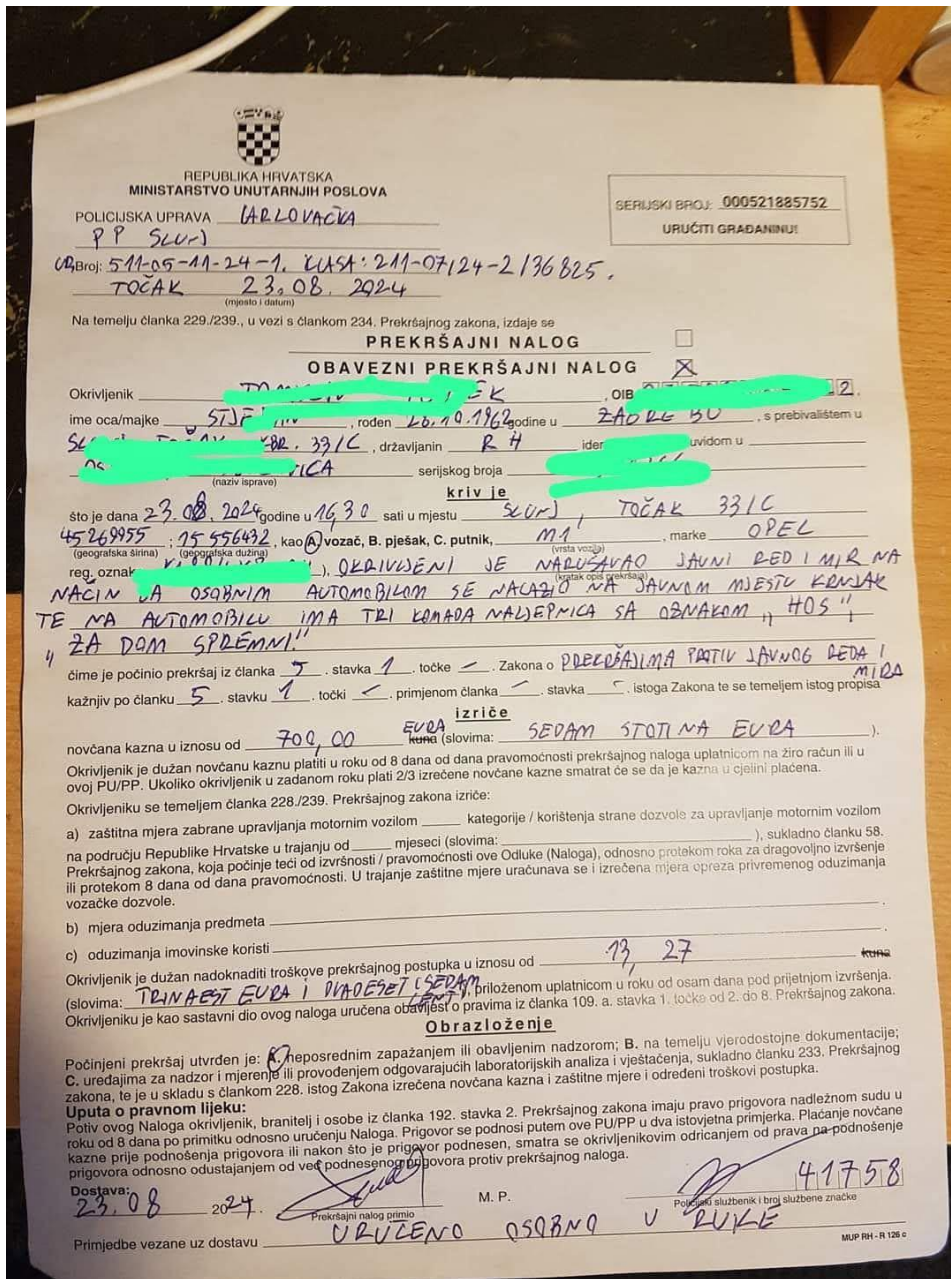 REPUBLIKA HRVATSKA
MINISTARSTVO UNUTARNJIH POSLOVA
POLICIJSKA UPRAVA KARLOVAČKA
PP SLUNJ
SERIJSKI BROJ: 000521885752
URUČITI GRAĐANINU!
Broj: 511-05-11-24-1. KLASA: 211-07/24-2/36825.
TOČAK 23.08.2024
(mjesto i datum)
Na temelju članka 229./239., u vezi s člankom 234. Prekršajnog zakona, izdaje se
PREKRŠAJNI NALOG
OBAVEZNI PREKRŠAJNI NALOG
Okrivljenik , OIB 2.
ime oca/majke , rođen 26.10.1962 godine u ZAGREBU , s prebivalištem u
33/C , državljanin RH uvidom u
serijskog broja
(naziv isprave)
kriv je
što je dana 23.08.2024 godine u 16,30 sati u mjestu SLUNJ, TOČAK 33/C
45269955 ; 15556432, kao A. vozač, B. pješak, C. putnik, M1 , marke OPEL
(geografska širina) (geografska dužina) (vrsta vozila)
reg. oznak ), OKRIVLJENI JE NARUŠAVAO JAVNI RED I MIR NA
(kratak opis prekršaja)
NAČIN DA OSOBNIM AUTOMOBILOM SE NALAZIO NA JAVNOM MJESTU KRNJAK
TE NA AUTOMOBILU IMA TRI KOMADA NALJEPNICA SA OZNAKOM "HOS",
"ZA DOM SPREMNI."
čime je počinio prekršaj iz članka 5. stavka 1. točke –. Zakona o PREKRŠAJIMA PROTIV JAVNOG REDA I MIRA
kažnjiv po članku 5. stavku 1. točki –. primjenom članka – . stavka – . istoga Zakona te se temeljem istog propisa
izriče
novčana kazna u iznosu od 700,00 EURA kuna (slovima: SEDAM STOTINA EURA ).
Okrivljenik je dužan novčanu kaznu platiti u roku od 8 dana od dana pravomoćnosti prekršajnog naloga uplatnicom na žiro račun ili u
ovoj PU/PP. Ukoliko okrivljenik u zadanom roku plati 2/3 izrečene novčane kazne smatrat će se da je kazna u cjelini plaćena.
Okrivljeniku se temeljem članka 228./239. Prekršajnog zakona izriče:
a) zaštitna mjera zabrane upravljanja motornim vozilom kategorije / korištenja strane dozvole za upravljanje motornim vozilom
na području Republike Hrvatske u trajanju od mjeseci (slovima: ), sukladno članku 58.
Prekršajnog zakona, koja počinje teći od izvršnosti / pravomoćnosti ove Odluke (Naloga), odnosno protekom roka za dragovoljno izvršenje
ili protekom 8 dana od dana pravomoćnosti. U trajanje zaštitne mjere uračunava se i izrečena mjera opreza privremenog oduzimanja
vozačke dozvole.
b) mjera oduzimanja predmeta .
c) oduzimanja imovinske koristi .
Okrivljenik je dužan nadoknaditi troškove prekršajnog postupka u iznosu od 13,27 kuna
(slovima: TRINAEST EURA I DVADESET I SEDAM CENTI), priloženom uplatnicom u roku od osam dana pod prijetnjom izvršenja.
Okrivljeniku je kao sastavni dio ovog naloga uručena obavijest o pravima iz članka 109. a. stavka 1. točke od 2. do 8. Prekršajnog zakona.
Obrazloženje
Počinjeni prekršaj utvrđen je: A. neposrednim zapažanjem ili obavljenim nadzorom; B. na temelju vjerodostojne dokumentacije;
C. uređajima za nadzor i mjerenje ili provođenjem odgovarajućih laboratorijskih analiza i vještačenja, sukladno članku 233. Prekršajnog
zakona, te je u skladu s člankom 228. istog Zakona izrečena novčana kazna i zaštitne mjere i određeni troškovi postupka.
Uputa o pravnom lijeku:
Potiv ovog Naloga okrivljenik, branitelj i osobe iz članka 192. stavka 2. Prekršajnog zakona imaju pravo prigovora nadležnom sudu u
roku od 8 dana po primitku odnosno uručenju Naloga. Prigovor se podnosi putem ove PU/PP u dva istovjetna primjerka. Plaćanje novčane
kazne prije podnošenja prigovora ili nakon što je prigovor podnesen, smatra se okrivljenikovim odricanjem od prava na podnošenje
prigovora odnosno odustajanjem od već podnesenog prigovora protiv prekršajnog naloga.
Dostava:
23.08 2024.
Prekršajni nalog primio
M. P.
41758
Policijski službenik i broj službene značke
Primjedbe vezane uz dostavu URUČENO OSOBNO U RUKE
MUP RH - R 126 c